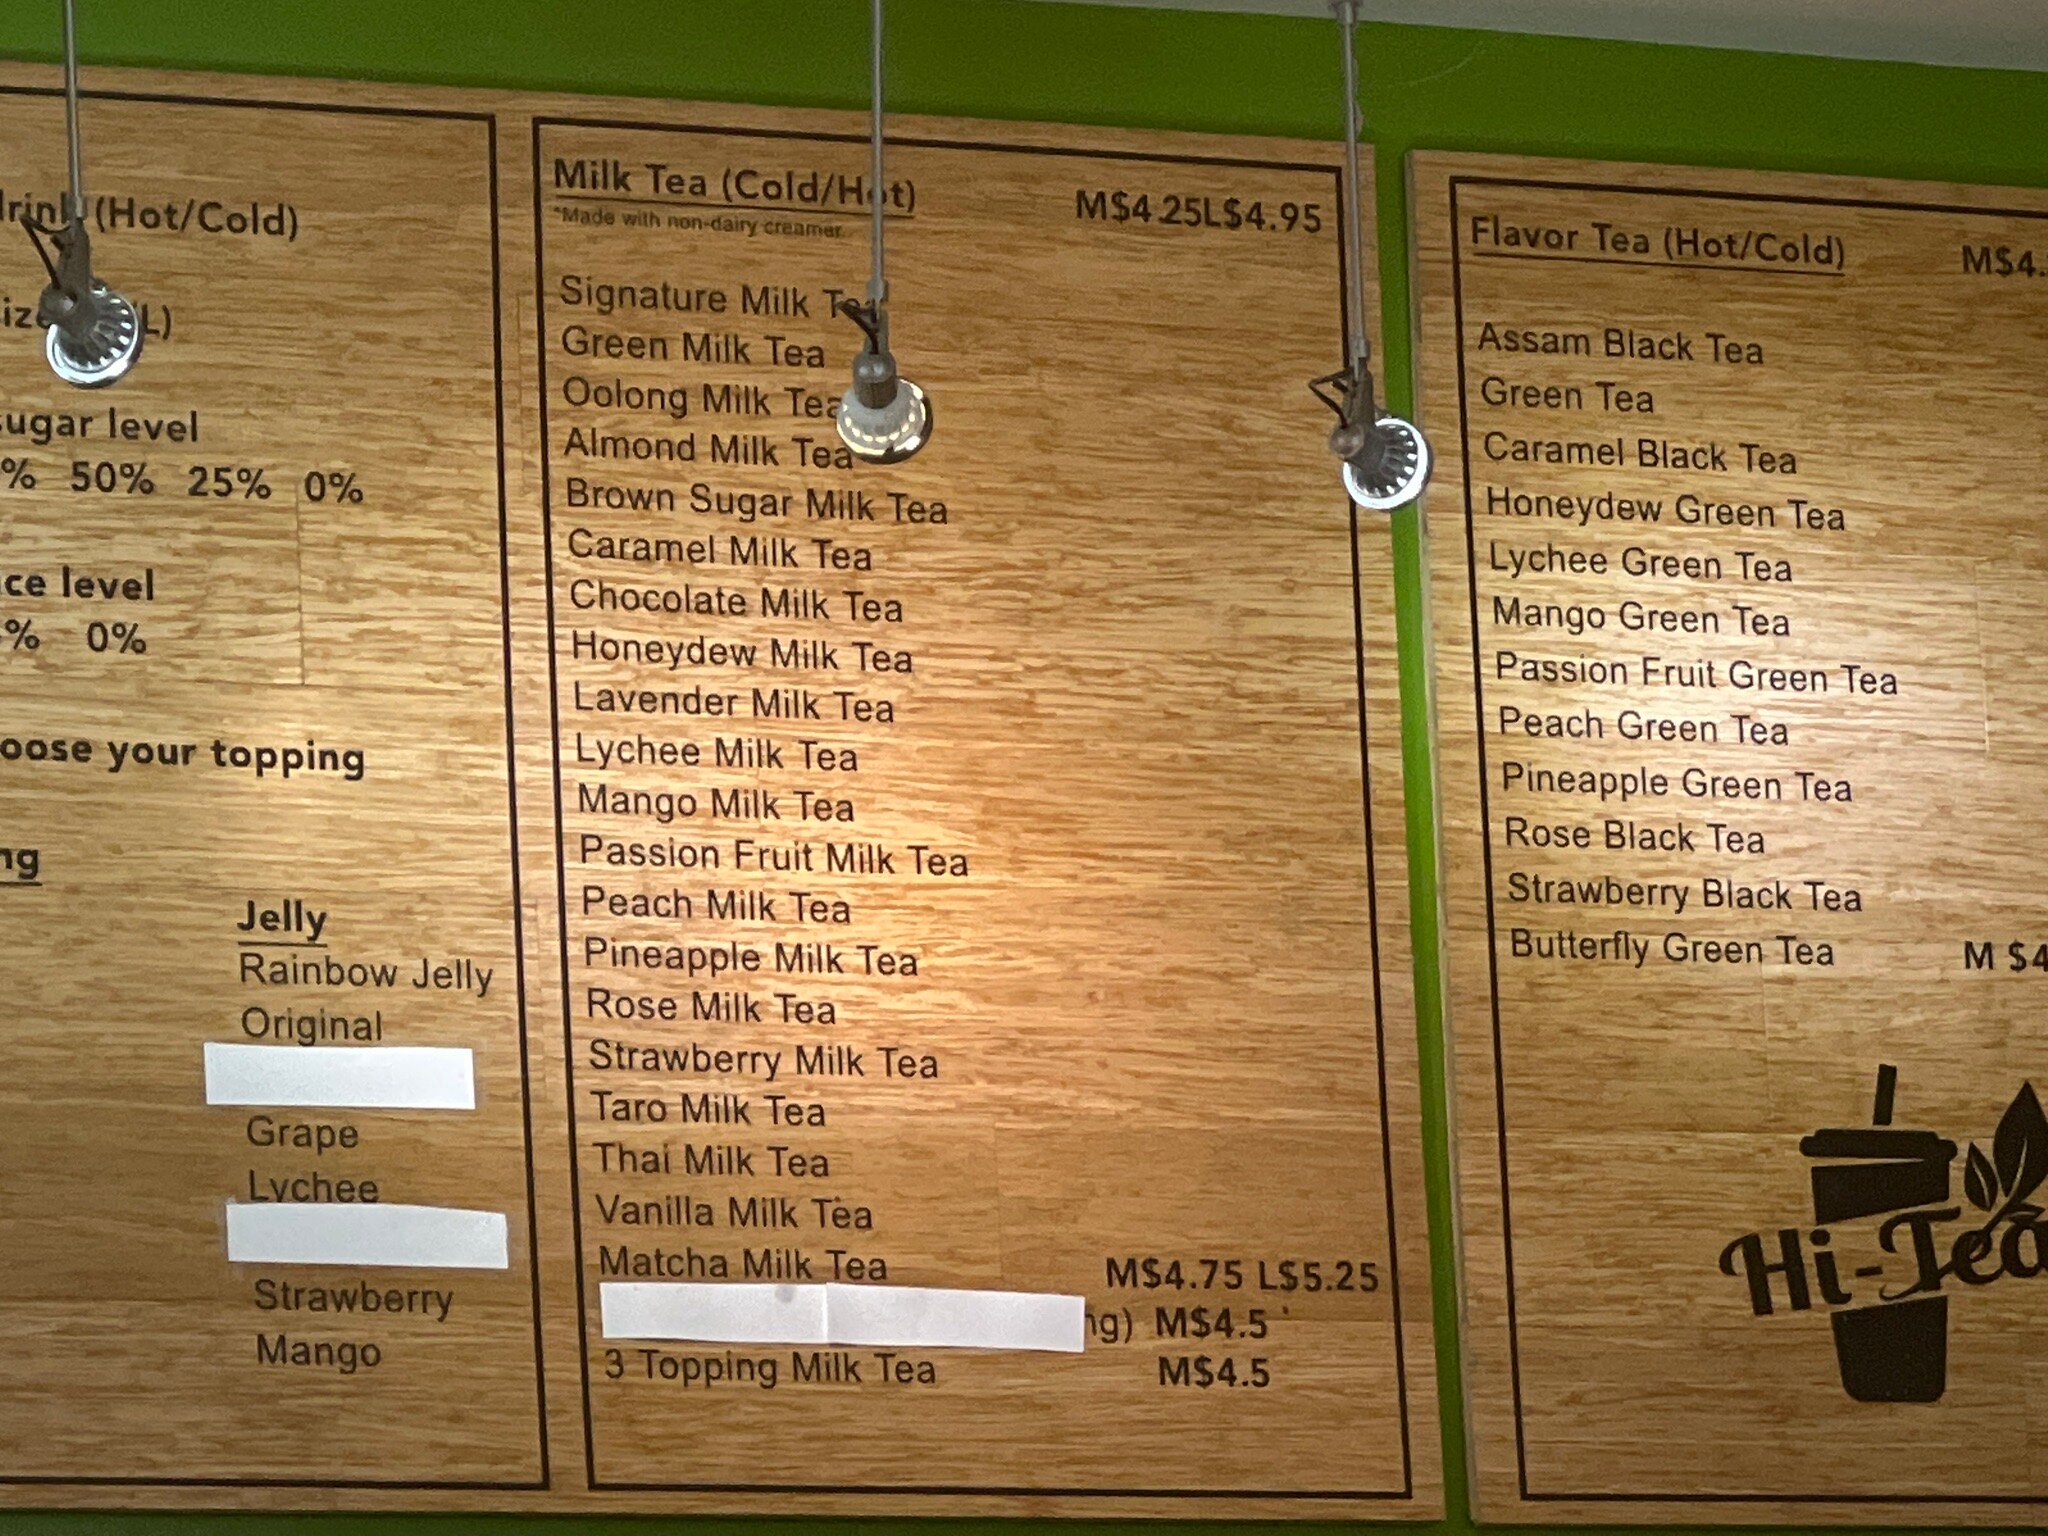 (Hot/Cold)
L)
level
50% 25% 0%
level
% 0%
your topping
Jelly
Rainbow Jelly
Original
Grape
Lychee
Strawberry
Mango
Milk Tea (Cold/Hot) M$4.25L$4.95
*Made with non-dairy creamer
Signature Milk Tea
Green Milk Tea
Oolong Milk Tea
Almond Milk Tea
Brown Sugar Milk Tea
Caramel Milk Tea
Chocolate Milk Tea
Honeydew Milk Tea
Lavender Milk Tea
Lychee Milk Tea
Mango Milk Tea
Passion Fruit Milk Tea
Peach Milk Tea
Pineapple Milk Tea
Rose Milk Tea
Strawberry Milk Tea
Taro Milk Tea
Thai Milk Tea
Vanilla Milk Tea
Matcha Milk Tea M$4.75 L$5.25
ng) M$4.5
3 Topping Milk Tea M$4.5
Flavor Tea (Hot/Cold) M$4.
Assam Black Tea
Green Tea
Caramel Black Tea
Honeydew Green Tea
Lychee Green Tea
Mango Green Tea
Passion Fruit Green Tea
Peach Green Tea
Pineapple Green Tea
Rose Black Tea
Strawberry Black Tea
Butterfly Green Tea M $4
Hi-Tea